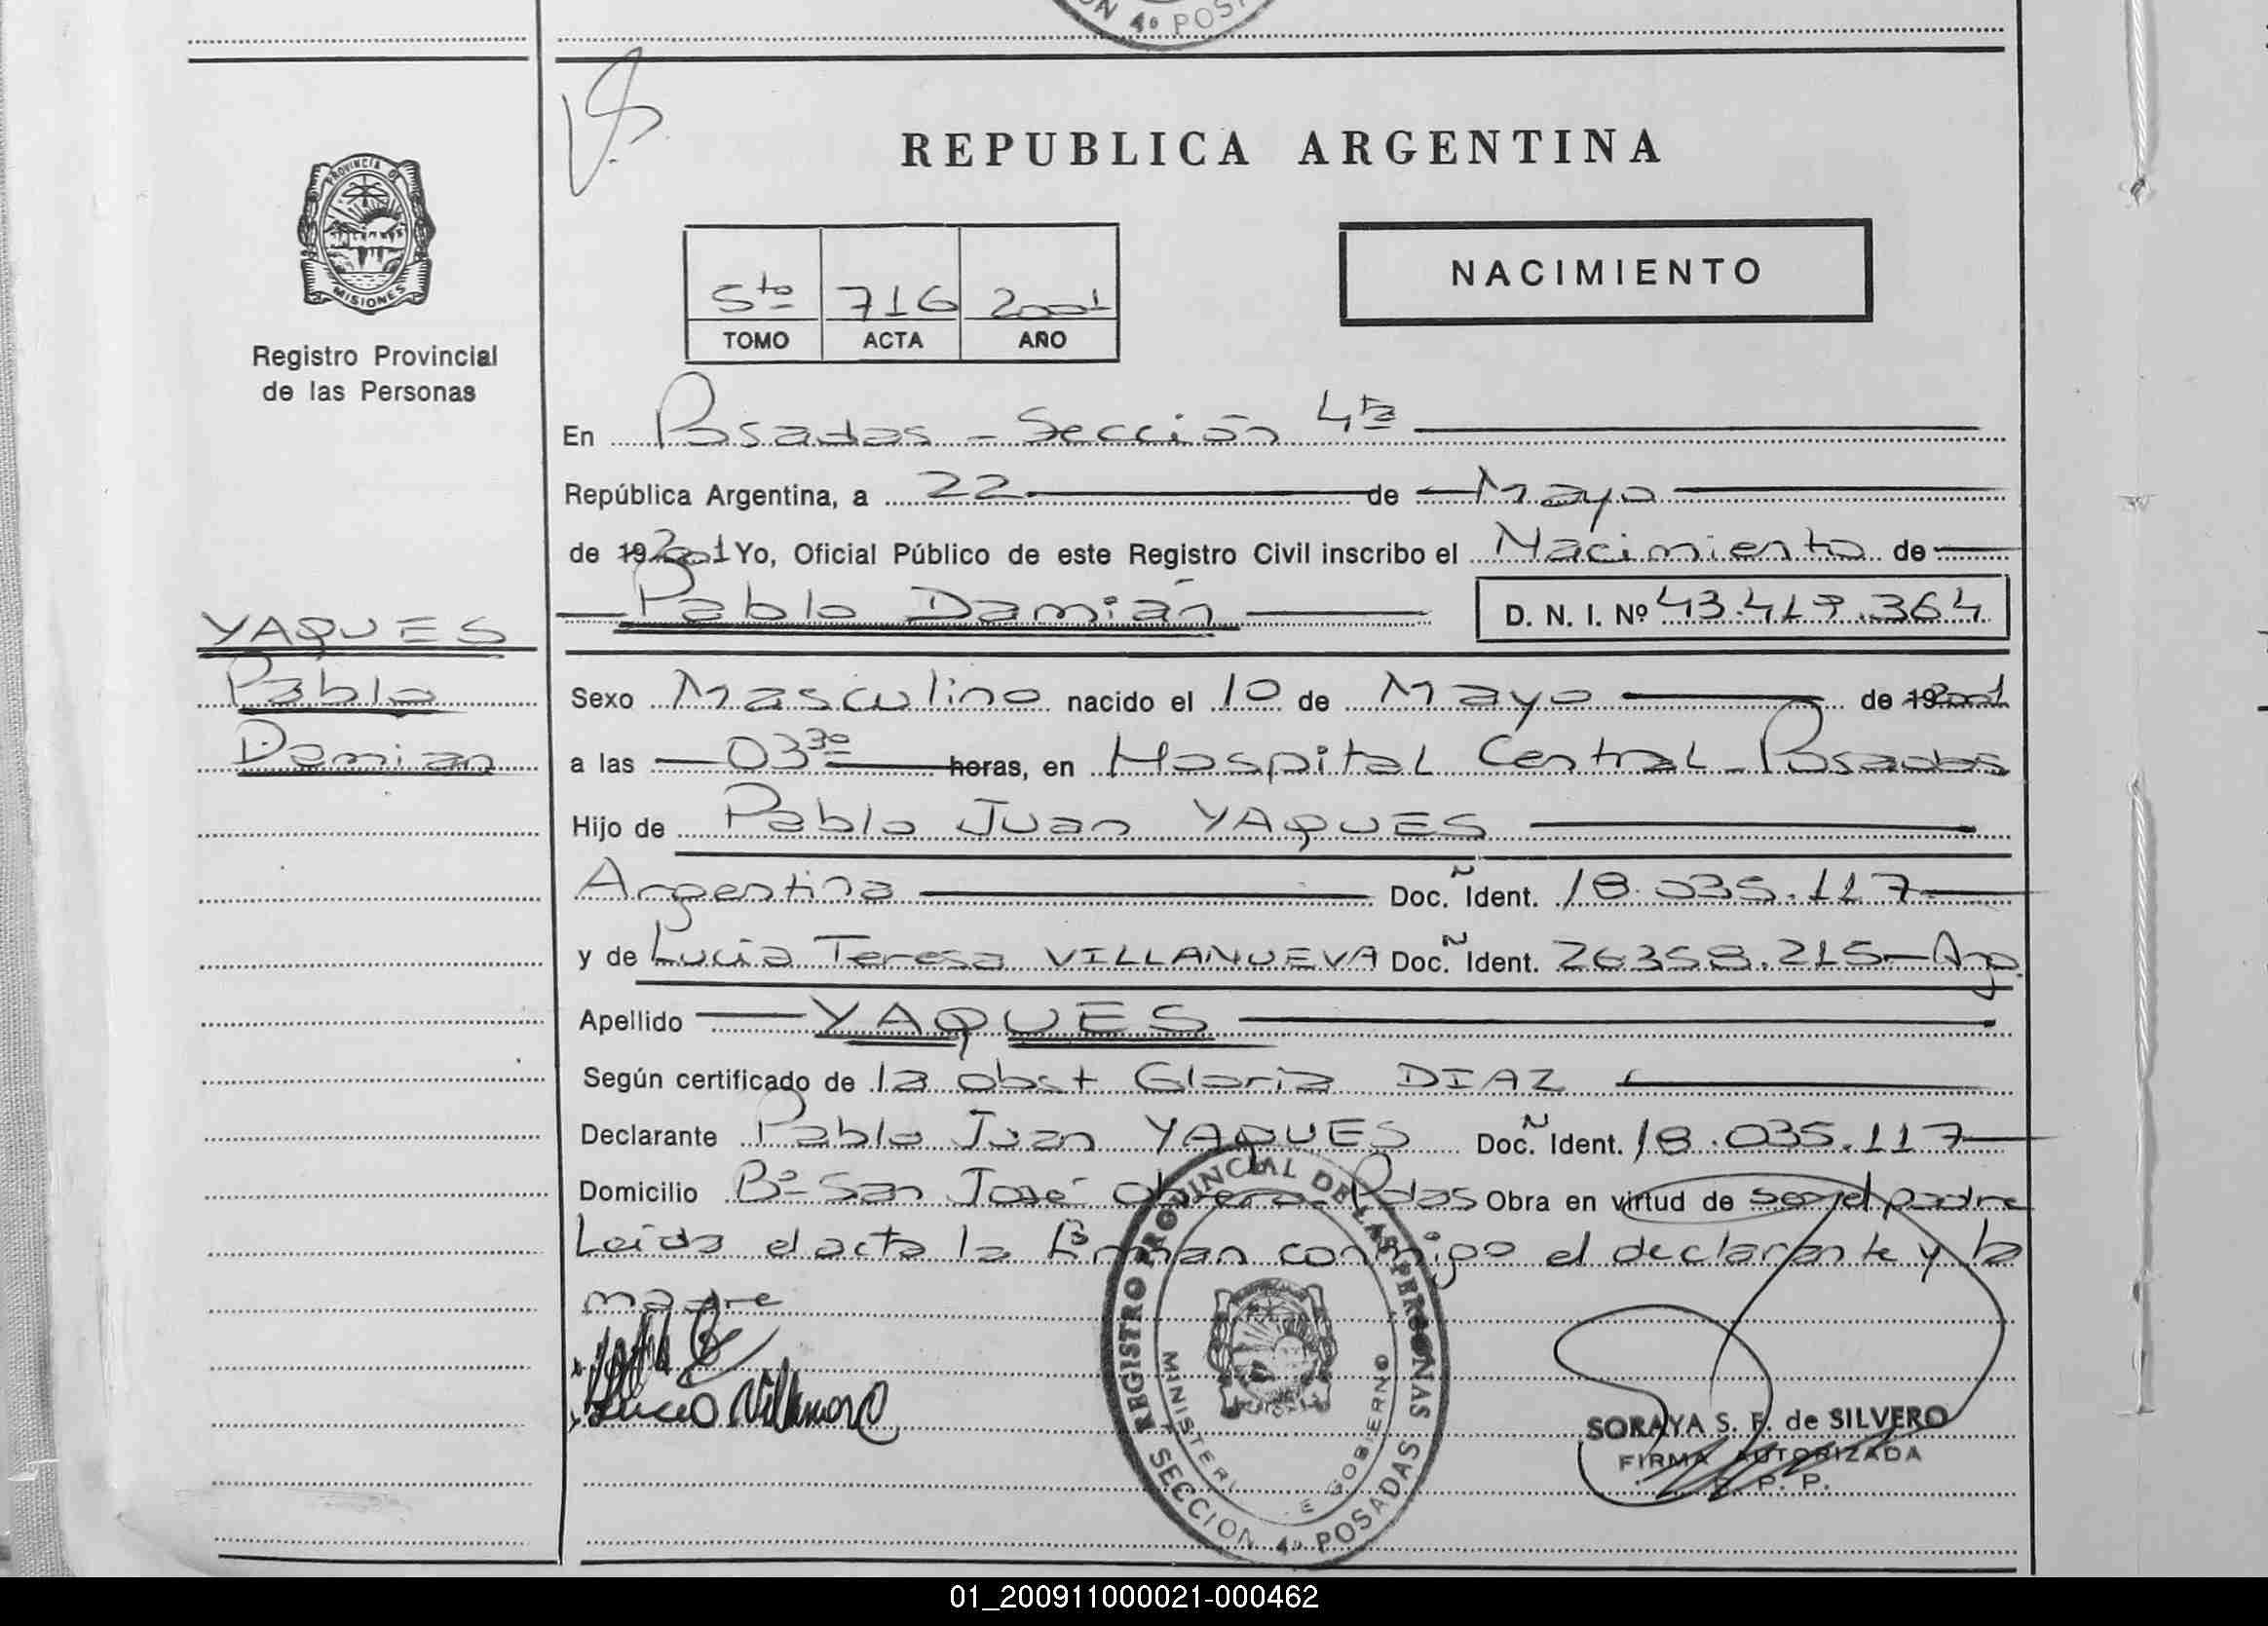 N 4º POS
REPUBLICA ARGENTINA
PROVINCIA DE
MISIONES
Registro Provincial
de las Personas
5to 716 2001
TOMO ACTA AÑO
NACIMIENTO
En Posadas - Sección 4ta
República Argentina, a 22 de Mayo
de 19 2001 Yo, Oficial Público de este Registro Civil inscribo el Nacimiento de
Pablo Damián D. N. I. Nº
YAQUES
Pablo
Damian
Sexo Masculino nacido el 10 de Mayo de 19 2001
a las 03 30 horas, en Hospital Central - Posadas
Hijo de Pablo Juan YAQUES
Argentina Doc. Ident. 18.035.117
y de Lucia Teresa VILLANUEVA Doc. Ident. 26358.215 - Arg.
Apellido YAQUES
Según certificado de la obst Gloria DIAZ
Declarante Pablo Juan YAQUES Doc. Ident. 18.035.117
Domicilio Bº San José Obrero Pdas Obra en virtud de ser el padre
Leida el acta la firman conmigo el declarante y la
madre
REGISTRO PROVINCIAL DE LAS PERSONAS
MINISTERI E GOBIERNO
SECCION 4º POSADAS
SORAYA S. F. de SILVERO
FIRMA AUTORIZADA
R. P. P.
01_200911000021-000462